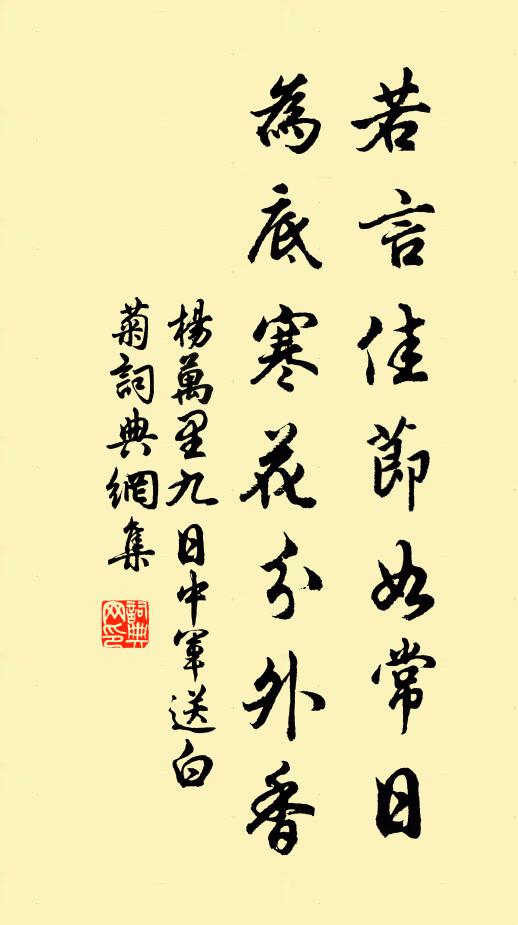 若言佳節如常日
為底寒花分外香
楊萬里九日中軍送白
菊詞典網集
詞典网印